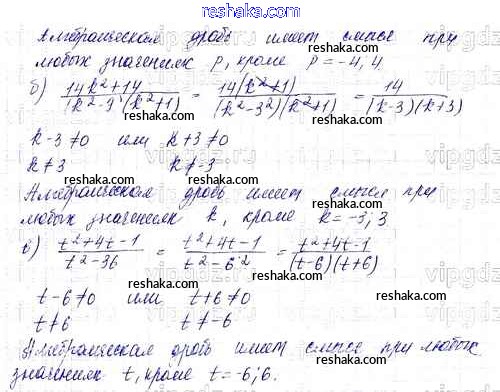 reshaka.com
Алгебраическая дробь имеет смысл при
любых значениях p, кроме p = -4, 4
б) (14k²+14)/((k²-9)(k²+1)) = 14(k²+1)/((k²-3²)(k²+1)) = 14/((k-3)(k+3))
reshaka.com reshaka.com
k-3≠0 или k+3≠0
k≠3 k≠-3
reshaka.com
Алгебраическая дробь имеет смысл при
любых значениях k, кроме k = -3; 3
reshaka.com
в) (t²+4t-1)/(t²-36) = (t²+4t-1)/(t²-6²) = (t²+4t-1)/((t-6)(t+6))
reshaka.com
t-6≠0 или t+6≠0
reshaka.com
t≠6 t≠-6
reshaka.com
Алгебраическая дробь имеет смысл при любых
значениях t, кроме t = -6; 6.
reshaka.com